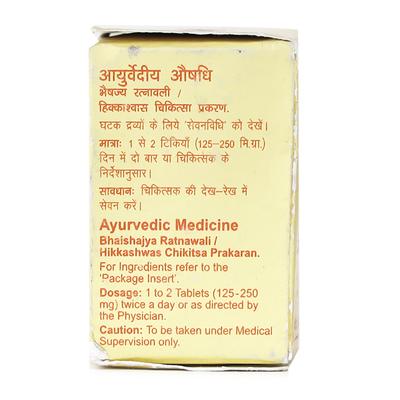 आयुर्वेदीय औषधि
भैषज्य रत्नावली /
हिक्काश्वास चिकित्सा प्रकरण.
घटक द्रव्यों के लिये 'सेवनविधि' को देखें।
मात्राः 1 से 2 टिकियाँ (125-250 मि.ग्रा.)
दिन में दो बार या चिकित्सक के
निर्देशानुसार।
सावधानः चिकित्सक की देख-रेख में
सेवन करें।
Ayurvedic Medicine
Bhaishajya Ratnawali /
Hikkashwas Chikitsa Prakaran.
For Ingredients refer to the
'Package Insert'.
Dosage: 1 to 2 Tablets (125-250
mg) twice a day or as directed by
the Physician.
Caution: To be taken under Medical
Supervision only.